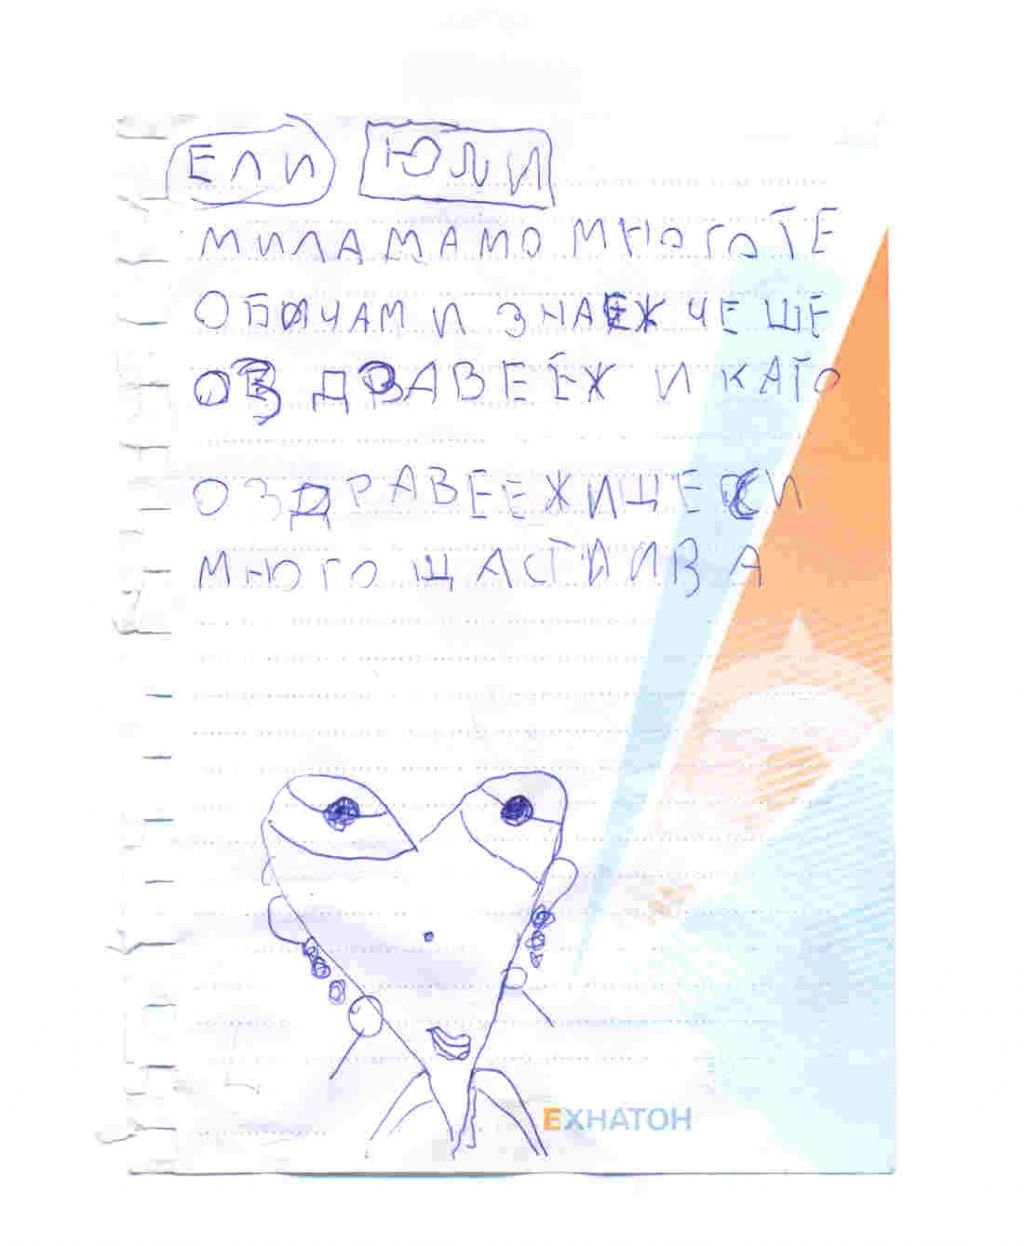 ЕЛИ ЮЛИ
МИЛА МАМО МНОГО ТЕ
ОБИЧАМ И ЗНАЕЖ ЧЕ ЩЕ
ОЗДРАВЕЕЖ И КАТО
ОЗДРАВЕЕЖ И ЩЕ СИ
МНОГО ЩАСТЛИВА
ЕХНАТОН